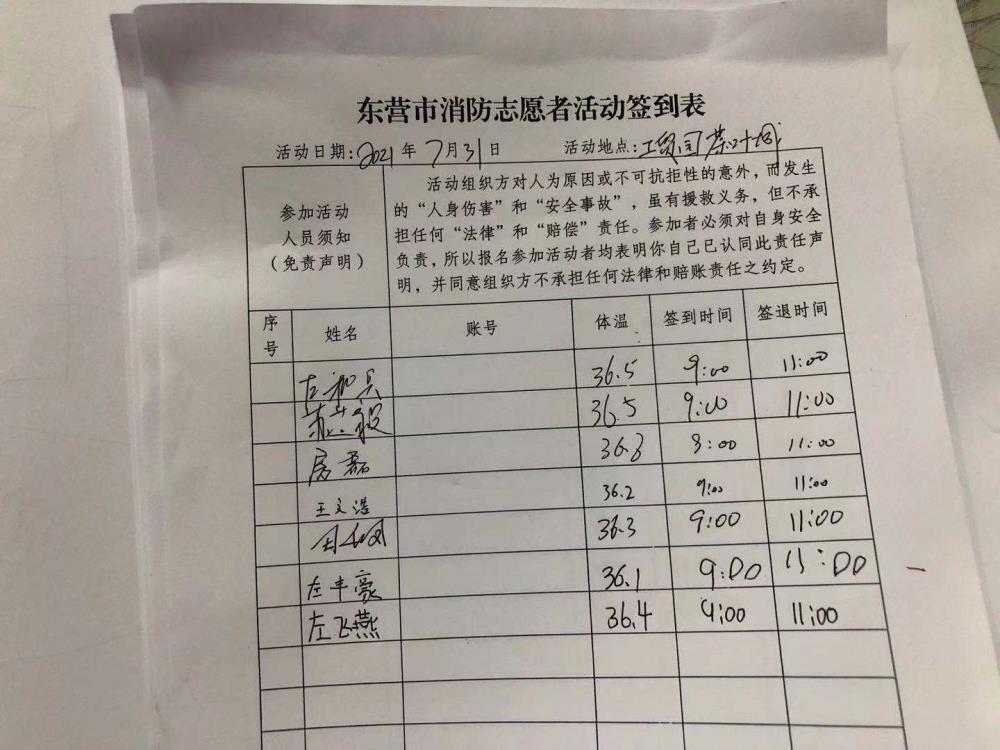 东营市消防志愿者活动签到表
活动日期:2021年7月31日 活动地点:
参加活动
人员须知
(免责声明)
活动组织方对人为原因或不可抗拒性的意外,而发生
的“人身伤害”和“安全事故”,虽有援救义务,但不承
担任何“法律”和“赔偿”责任。参加者必须对自身安全
负责,所以报名参加活动者均表明你自己已认同此责任声
明,并同意组织方不承担任何法律和赔账责任之约定。
序号 姓名 账号 体温 签到时间 签退时间
36.5 9:00 11:00
36.5 9:00 11:00
房磊 36.3 9:00 11:00
王文浩 36.2 9:00 11:00
36.3 9:00 11:00
左丰豪 36.1 9:00 11:00
左飞燕 36.4 9:00 11:00